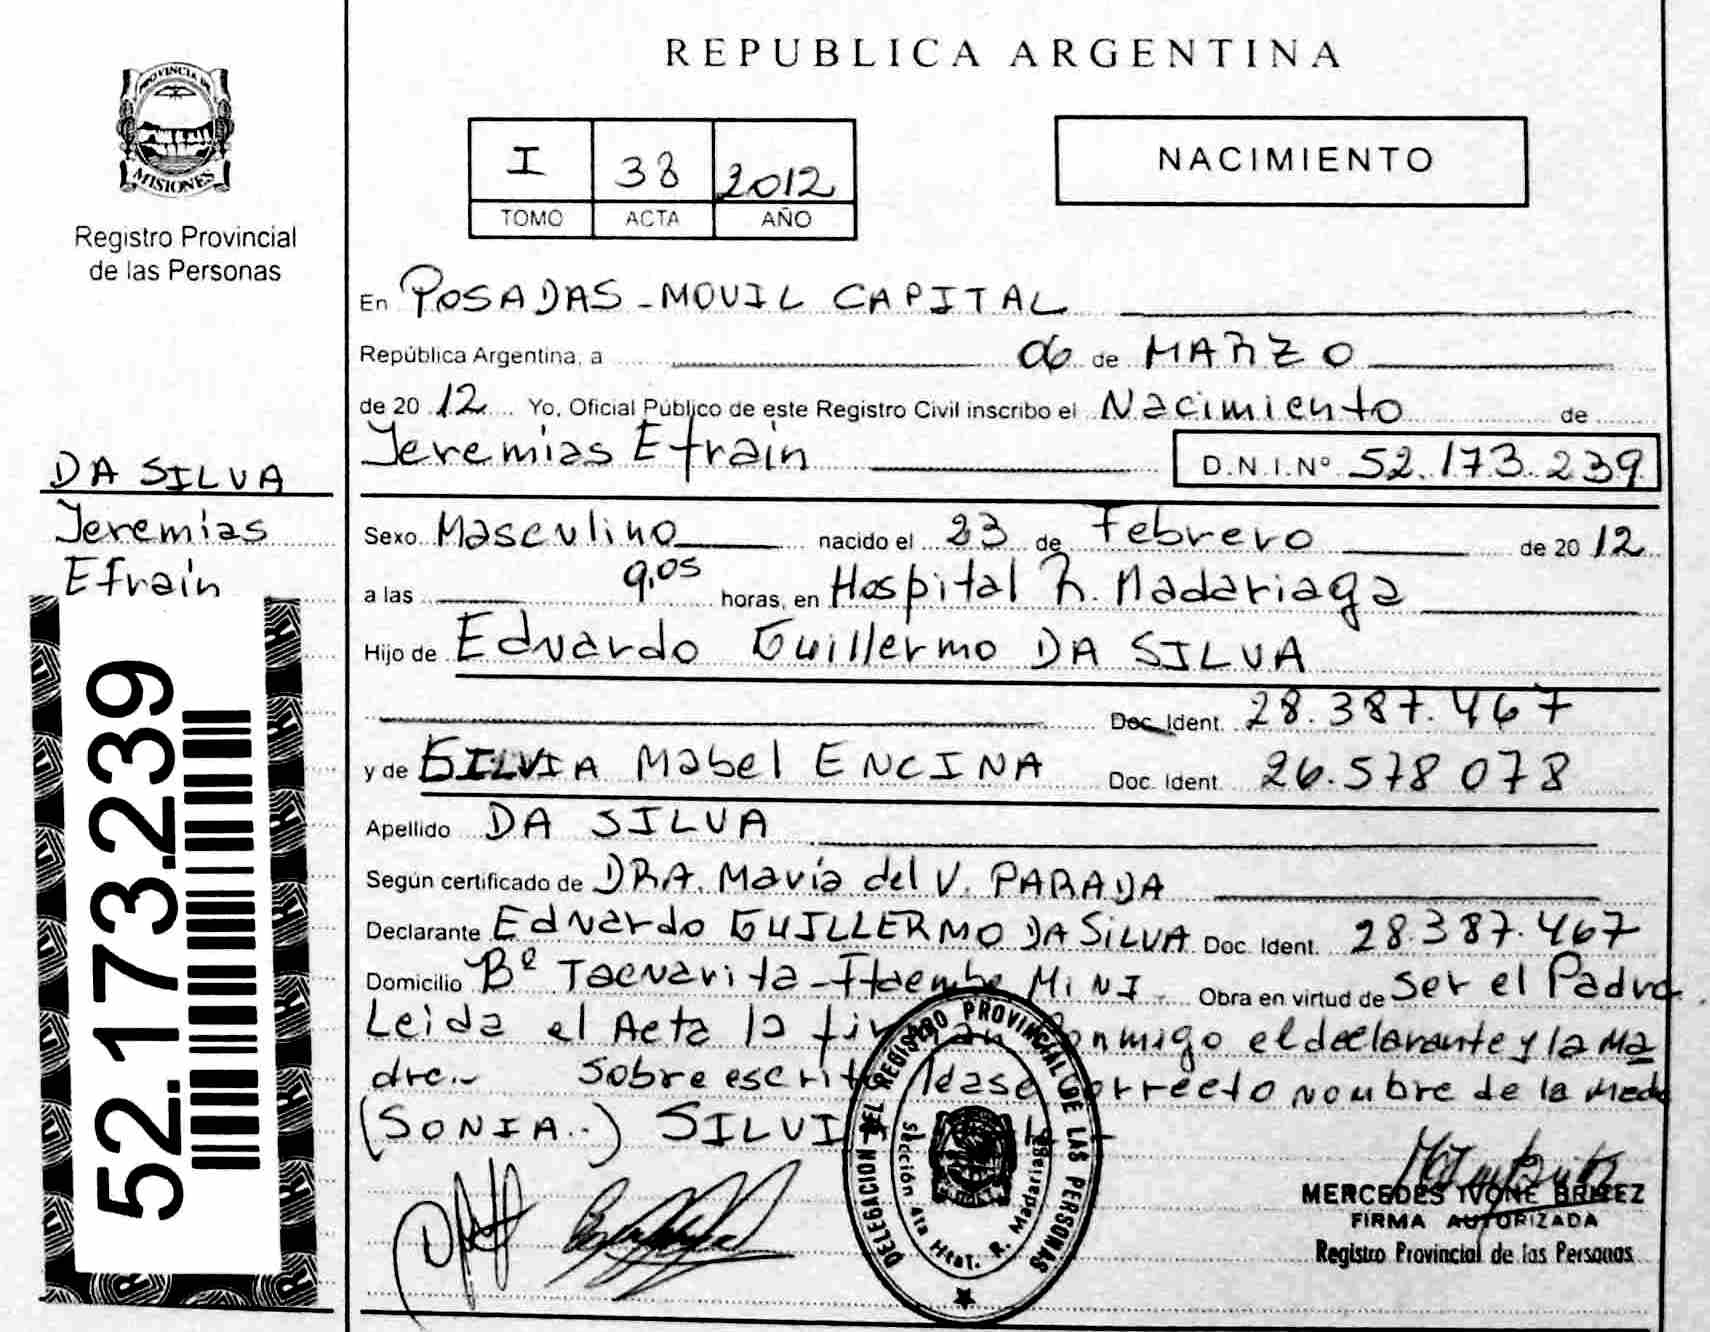 REPUBLICA ARGENTINA
PROVINCIA DE
MISIONES
Registro Provincial
de las Personas
I 38 2012
TOMO ACTA AÑO
NACIMIENTO
En POSADAS - MOVIL CAPITAL
República Argentina, a 06 de MARZO
de 20 12 Yo, Oficial Público de este Registro Civil inscribo el Nacimiento de
Jeremias Efrain D.N.I.Nº 52.173.239
DA SILVA
Jeremias
Efrain
52.173.239
Sexo Masculino nacido el 23 de Febrero de 20 12
a las 9,05 horas, en Hospital R. Madariaga
Hijo de Eduardo Guillermo DA SILVA
Doc. Ident. 28.387.467
y de SILVIA Mabel ENCINA Doc. Ident. 26.578 078
Apellido DA SILVA
Según certificado de DRA. María del V. PARADA
Declarante Eduardo GUILLERMO DA SILVA Doc. Ident. 28.387.467
Domicilio Bº Tacuarita - Itaembe MINI Obra en virtud de Ser el Padre
Leida el Acta la firman conmigo el declarante y la Ma
dre.- Sobre escrito léase correcto nombre de la Madre
(SONIA..) SILVIA
DELEGACION DEL REGISTRO PROVINCIAL DE LAS PERSONAS
Sección 4ta Htal. R. Madariaga
MERCEDES IVONE BRITEZ
FIRMA AUTORIZADA
Registro Provincial de las Personas